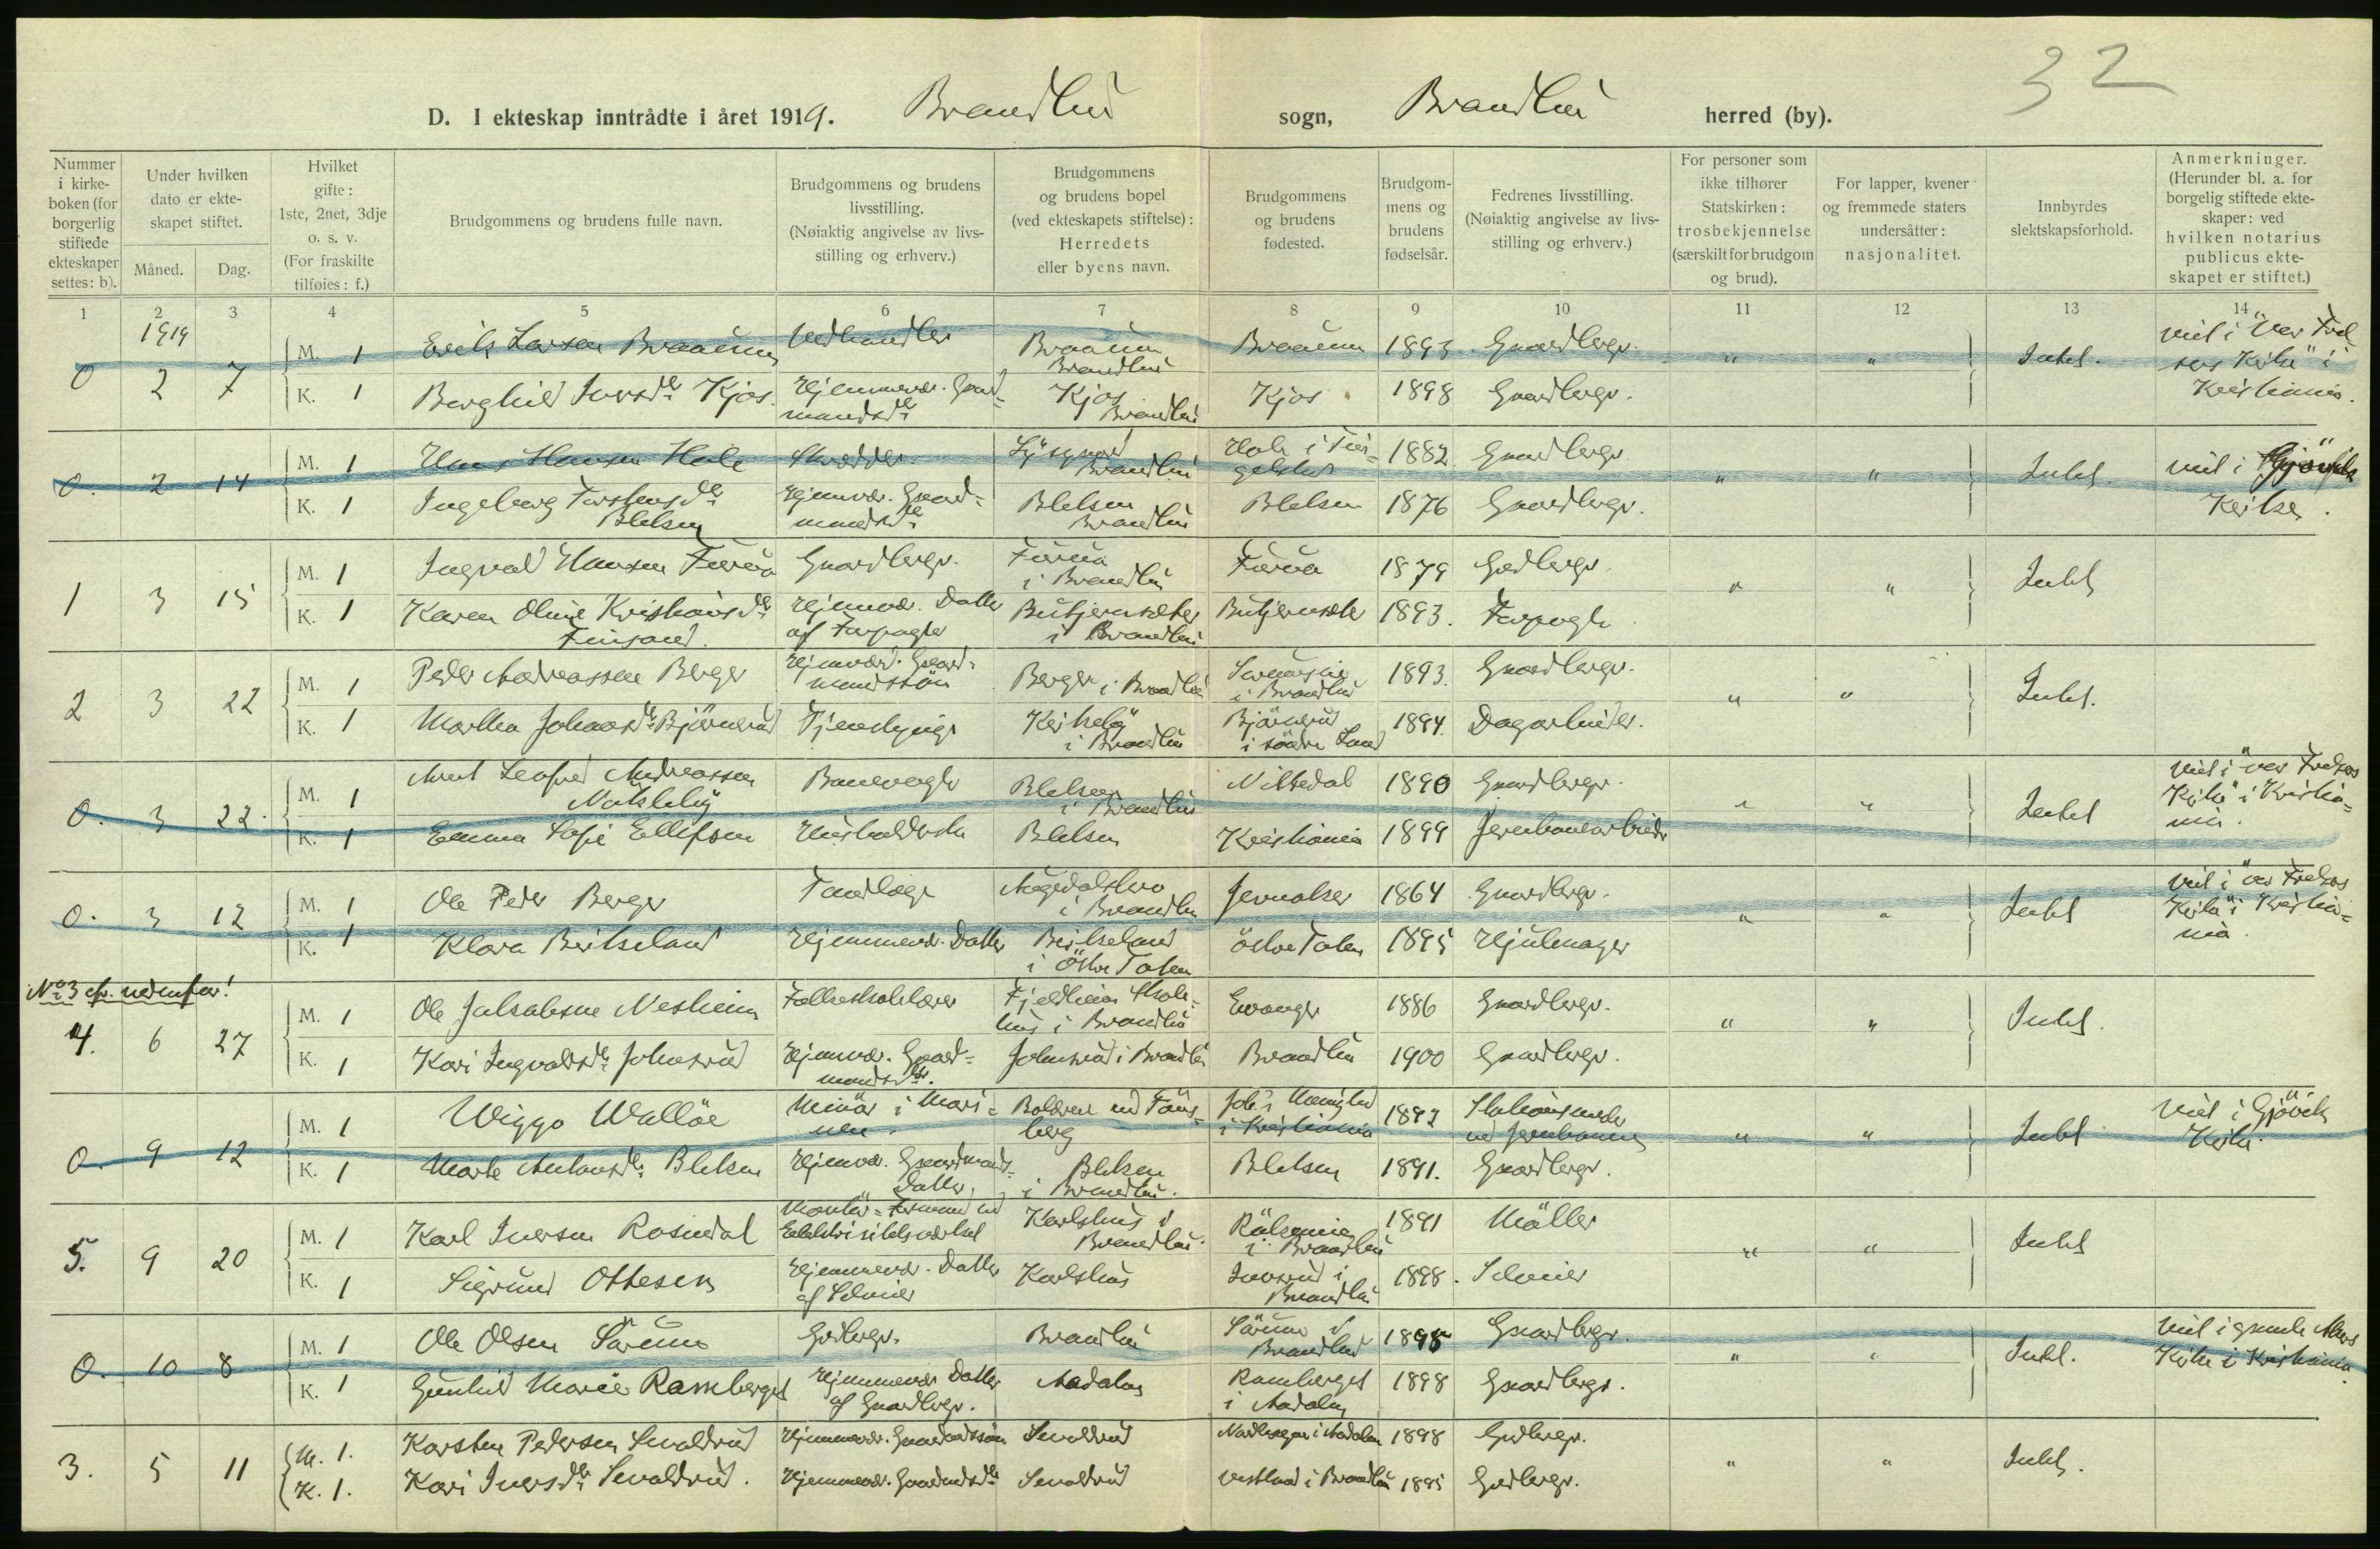 32
D. I ekteskap inntrådte i året 1919. Brandbu sogn, Brandbu herred (by).
Nummer i kirke-boken (for borgerlig stiftede ekteskaper settes: b).
Under hvilken dato er ekte-skapet stiftet.
Måned. Dag.
Hvilket gifte: 1ste, 2net, 3dje o. s. v. (For fraskilte tilføies: f.)
Brudgommens og brudens fulle navn.
Brudgommens og brudens livsstilling. (Nøiaktig angivelse av livs-stilling og erhverv.)
Brudgommens og brudens bopel (ved ekteskapets stiftelse): Herredets eller byens navn.
Brudgommens og brudens fødested.
Brudgom-mens og brudens fødselsår.
Fedrenes livsstilling. (Nøiaktig angivelse av livs-stilling og erhverv.)
For personer som ikke tilhører Statskirken: trosbekjennelse (særskilt for brudgom og brud).
For lapper, kvener og fremmede staters undersåtter: nasjonalitet.
Innbyrdes slektskapsforhold.
Anmerkninger. (Herunder bl. a. for borgelig stiftede ekte-skaper: ved hvilken notarius publicus ekte-skapet er stiftet.)
1 2 3 4 5 6 7 8 9 10 11 12 13 14
1919
0 2 7 M. 1 Erik Larsen Braaum Vedhandler Braaum Brandbu Braaum 1893 Gaardbrgr. " " Intet. viet i "Vor Frel-sers Kirke" i Kristiania.
K. 1 Borghild Iversdtr Kjos Hjemmevær. Gaard-mandsdtr Kjos Brandbu Kjos 1898 Gaardbrgr.
0. 2 14 M. 1 Hans Hansen Hole Skrædder Lysgaard Brandbu Hole i 1882 Gaardbrgr. " " Intet. viet i Gjøvik
K. 1 Ingeborg Torstensdtr Blelsen Hjemvær. Gaard-mandsdtr Blelsen Brandbu Blelsen 1876 Gaardbrgr. Kirke.
1 3 15 M. 1 Ingvald Hansen Furua Gaardbrgr. Furua i Brandbu Furua 1879 Gdbrgr. " " Intet
K. 1 Karen Oline Kristiansdtr Hjemvær. Datter af Forpagter i Brandbu 1893. Forpagter
2 3 22 M. 1 Peder Andreassen Berger Hjemvær. Gaard-mandssøn Berger i Brandbu i Brandbu 1893. Gaardbrgr. " " Intet.
K. 1 Marthea Johansdtr Bjørnerud Tjenestepige i Brandbu Bjørnerud i søndre Land 1894. Dagarbeider.
0. 3 22. M. 1 Arnt Andreassen Banevogter Blelsen i Brandbu Nittedal 1890 Gaardbrgr. " " Intet viet i "Vor Frelsers Kirke" i Kristia-nia.
K. 1 Emma Sofie Ellefsen Blelsen Kristiania 1899 Jernbanearbeider
0. 3 12 M. 1 Ole Peder Berger Tandlæge Augedalsbro i Brandbu Jevnaker 1864 Gaardbrgr. " " Intet viet i "Vor Frelsers Kirke" i Kristia-nia.
K. 1 Klara Hjemmevær. Datter i Østre Toten Østre Toten 1895 Hjulmager
No 3 cfr. nedenfor!
4. 6 27 M. 1 Ole Nesheim Folkeskolelærer Fjeldheim Skole-hus i Brandbu Evanger 1886 Gaardbrgr. " " Intet.
K. 1 Kari Ingvaldsdtr Johnsrud Hjemvær. Gaard-mandsdtr. Johnsrud i Brandbu Brandbu 1900 Gaardbrgr.
0. 9 12 M. 1 Wiggo Walløe Minør i Mari-nen. Bolærne ved Tøns-berg i Kristiania 1892 Stationsmester ved Jernbanen " " Intet Viet i Gjøvik Kirke.
K. 1 Marte Antonsdtr. Blelsen Hjemvær. Gaardmands-Datter. Blelsen i Brandbu. Blelsen 1891. Gaardbrgr.
5. 9 20 M. 1 Karl Iversen Rosendal Montør-Formand ved Elektrisitetsværket Karlshus i Brandbu. i Brandbu 1891 Møller " " Intet
K. 1 Sigrund Ottesen Hjemmevær. Datter af Karlshus i Brandbu 1898.
0. 10 8 M. 1 Ole Olsen Sørum Gdbrgr. Brandbu Sørum i Brandbu 1895 Gaardbrgr. " " Intet. viet i gamle Akers Kirke i Kristiania.
K. 1 Gunhild Marie Ramberget Hjemmevær. Datter af Gaardbrgr. Aadalen Ramberget i Aadalen 1898 Gaardbrgr.
3. 5 11 M. 1. Karsten Pedersen Sevaldrud Hjemmevær. Gaardmdssøn Sevaldrud i Aadalen 1898 Gdbrgr. " " Intet.
K. 1. Kari Iversdtr Sevaldrud. Hjemmevær. Gaardmdsdtr Sevaldrud i Brandbu 1895 Gdbrgr.